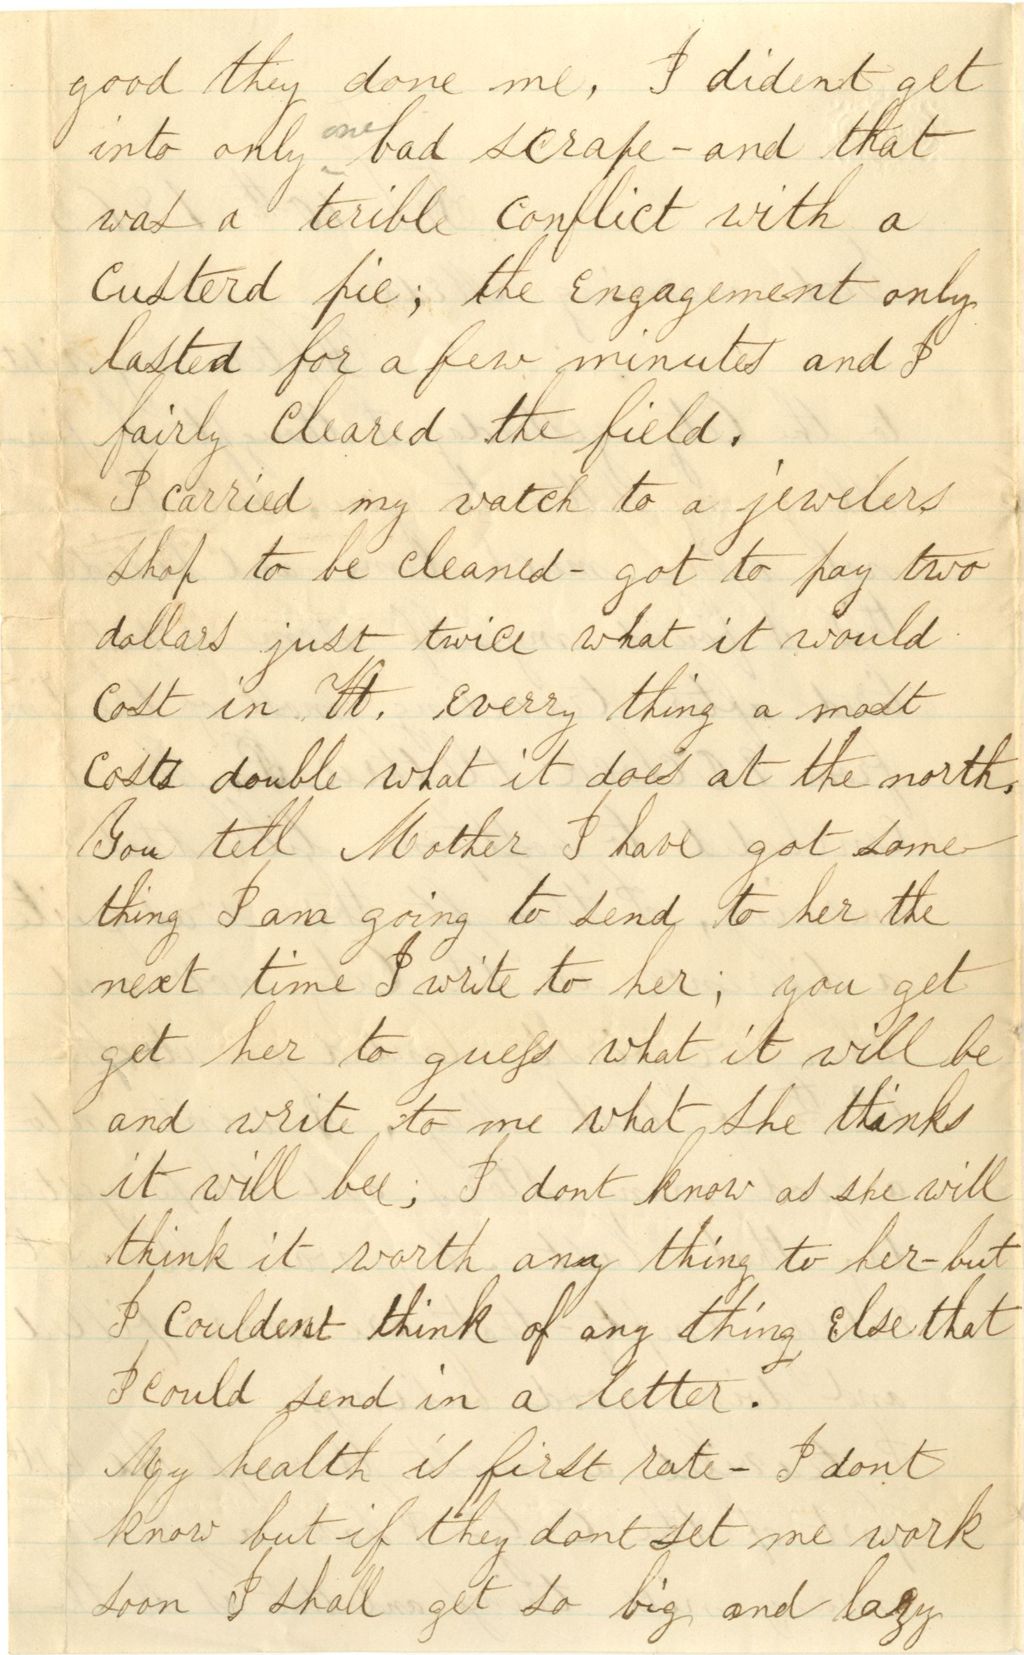 good they done me, I dident get
into only one bad scrape - and that
was a terible conflict with a
Custerd pie; the Engagement only
lasted for a few minutes and I
fairly Cleared the field.
I carried my watch to a jewelers
shop to be cleaned - got to pay two
dollars just twice what it would
Cost in Vt. Everry thing a most
Costs double what it does at the north.
You tell Mother I have got some
thing I am going to send to her the
next time I write to her; you get
get her to guess what it will be
and write to me what she thinks
it will bee; I dont know as she will
think it worth any thing to her - but
I Couldent think of any thing Else that
I Could send in a letter.
My health is first rate - I dont
know but if they dont set me work
soon I shall get so big and lazy